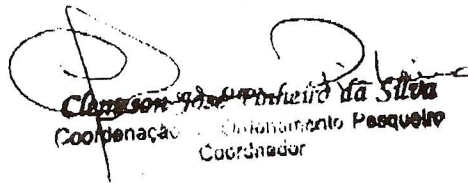 Clemeson José Pinheiro da Silva
Coordenação Ordenamento Pesqueiro
Coordenador